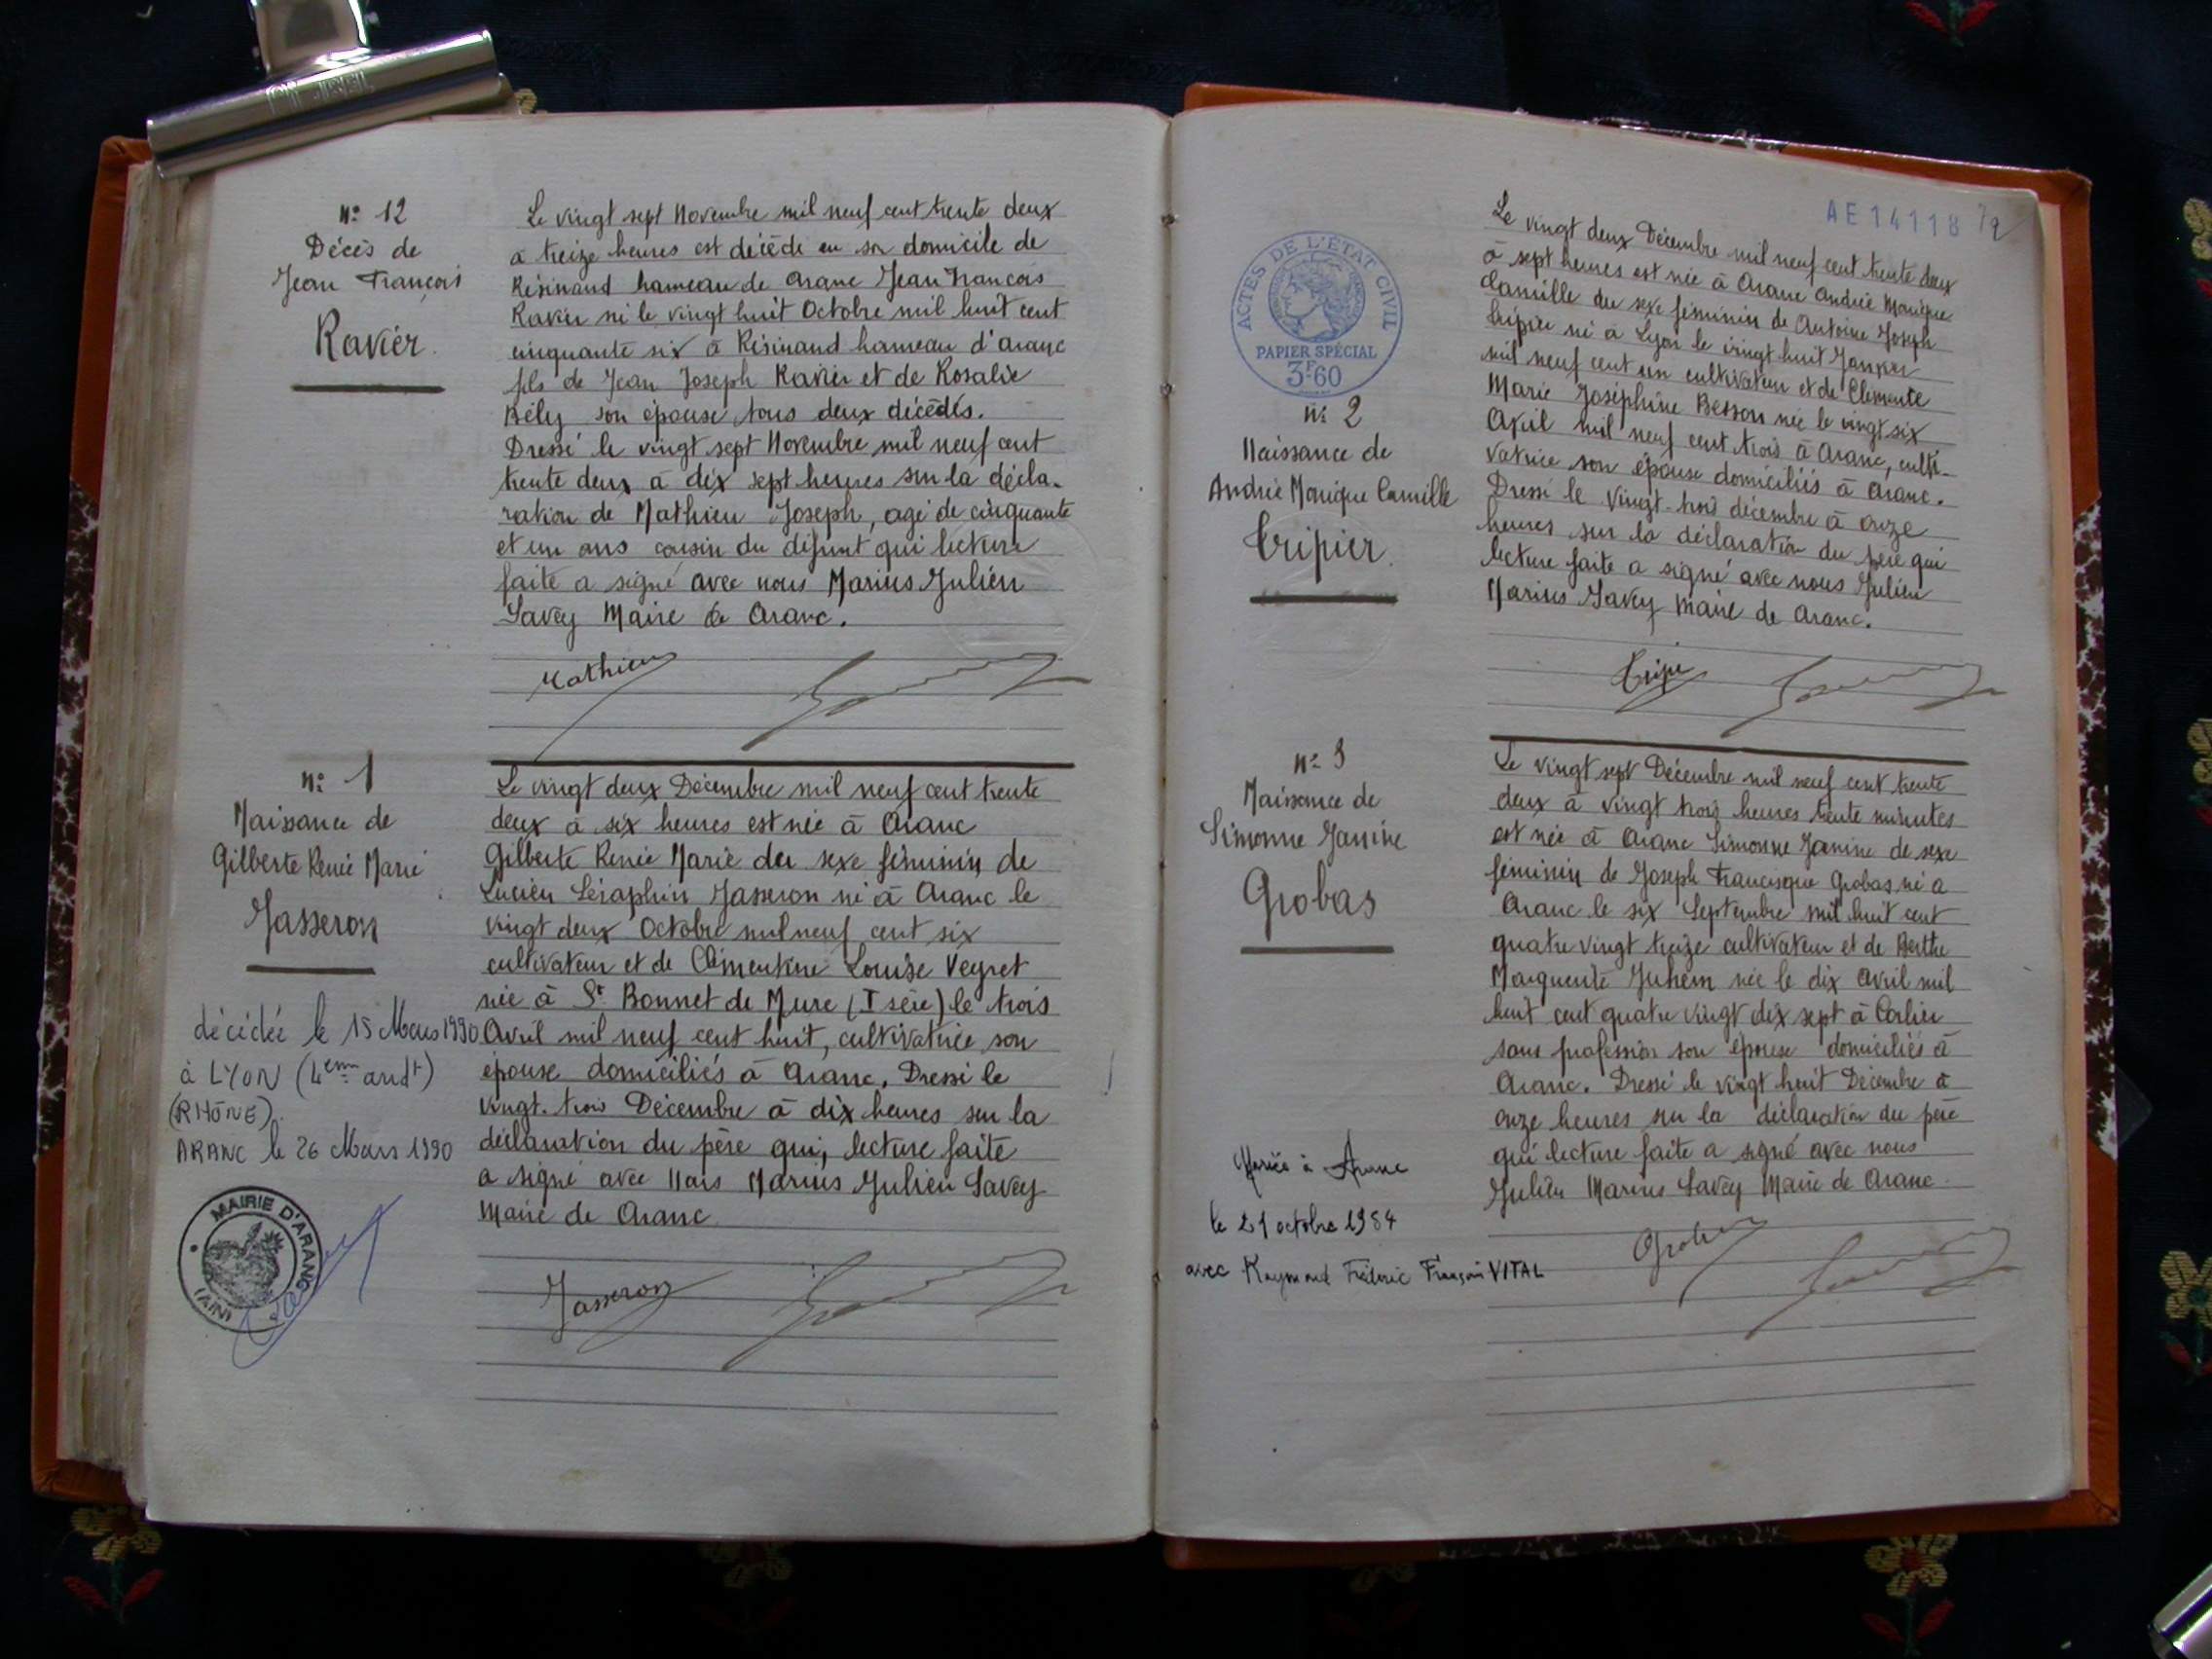 n° 12
Décès de
Jean François
Ravier
Le vingt sept Novembre mil neuf cent trente deux
à treize heures est décédé en son domicile de
Résinand hameau de Aranc Jean Francois
Ravier né le vingt huit Octobre mil huit cent
cinquante six à Résinand hameau d'aranc
fils de Jean Joseph Ravier et de Rosalie
Bély son épouse tous deux décédés.
Dressé le vingt sept Novembre mil neuf cent
trente deux à dix sept heures sur la décla-
ration de Mathieu Joseph, agé de cinquante
et un ans cousin du défunt qui lecture
faite a signé avec nous Marius Julien
Savey Maire de Aranc.
Mathieu
n° 1
Naissance de
Gilberte Renée Marie
Jasseron
décédée le 15 Mars 1990
à LYON (4em arrdt)
(RHÔNE).
ARANC le 26 Mars 1990
MAIRIE D'ARANC
(AIN)
Le vingt deux Décembre mil neuf cent trente
deux à six heures est née à Aranc
Gilberte Renée Marie du sexe féminin de
Lucien Séraphin Jasseron né à Aranc le
vingt deux Octobre mil neuf cent six
cultivateur et de Clémentine Louise Veyret
née à St Bonnet de Mure (Isère) le trois
Avril mil neuf cent huit, cultivatrice son
épouse domiciliés à Aranc. Dressé le
vingt-trois Décembre à dix heures sur la
déclaration du père qui, lecture faite
a signé avec Nous Marius Julien Savey
Maire de Aranc
Jasseron
AE14118
72
ACTES DE L'ÉTAT CIVIL
PAPIER SPÉCIAL
3F60
n° 2
Naissance de
Andrée Monique Camille
Tripier
Le vingt deux Décembre mil neuf cent trente deux
à sept heures est née à Aranc Andrée Monique
Camille du sexe féminin de Antoine Joseph
Tripier né à Lyon le vingt huit Janvier
mil neuf cent un cultivateur et de Clémente
Marie Joséphine Besson née le vingt six
Avril mil neuf cent trois à Aranc, culti-
vatrice son épouse domiciliés à Aranc.
Dressé le Vingt-trois décembre à onze
heures sur la déclaration du père qui
lecture faite a signé avec nous Julien
Marius Savey Maire de Aranc.
n° 3
Naissance de
Simonne Janine
Grobas
Mariée à Aranc
le 21 octobre 1954
avec Raymond Fréderic François VITAL
Le vingt sept Décembre mil neuf cent trente
deux à vingt trois heures trente minutes
est née à Aranc Simonne Janine de sexe
féminin de Joseph Francisque Grobas né à
Aranc le six Septembre mil huit cent
quatre vingt treize cultivateur et de Berthe
Marguerite Juhem née le dix Avril mil
huit cent quatre vingt dix sept à Corlier
sans profession son épouse domiciliés à
Aranc. Dressé le vingt huit Décembre à
onze heures sur la déclaration du père
qui lecture faite a signé avec nous
Julien Marius Savey Maire de Aranc
Grobas